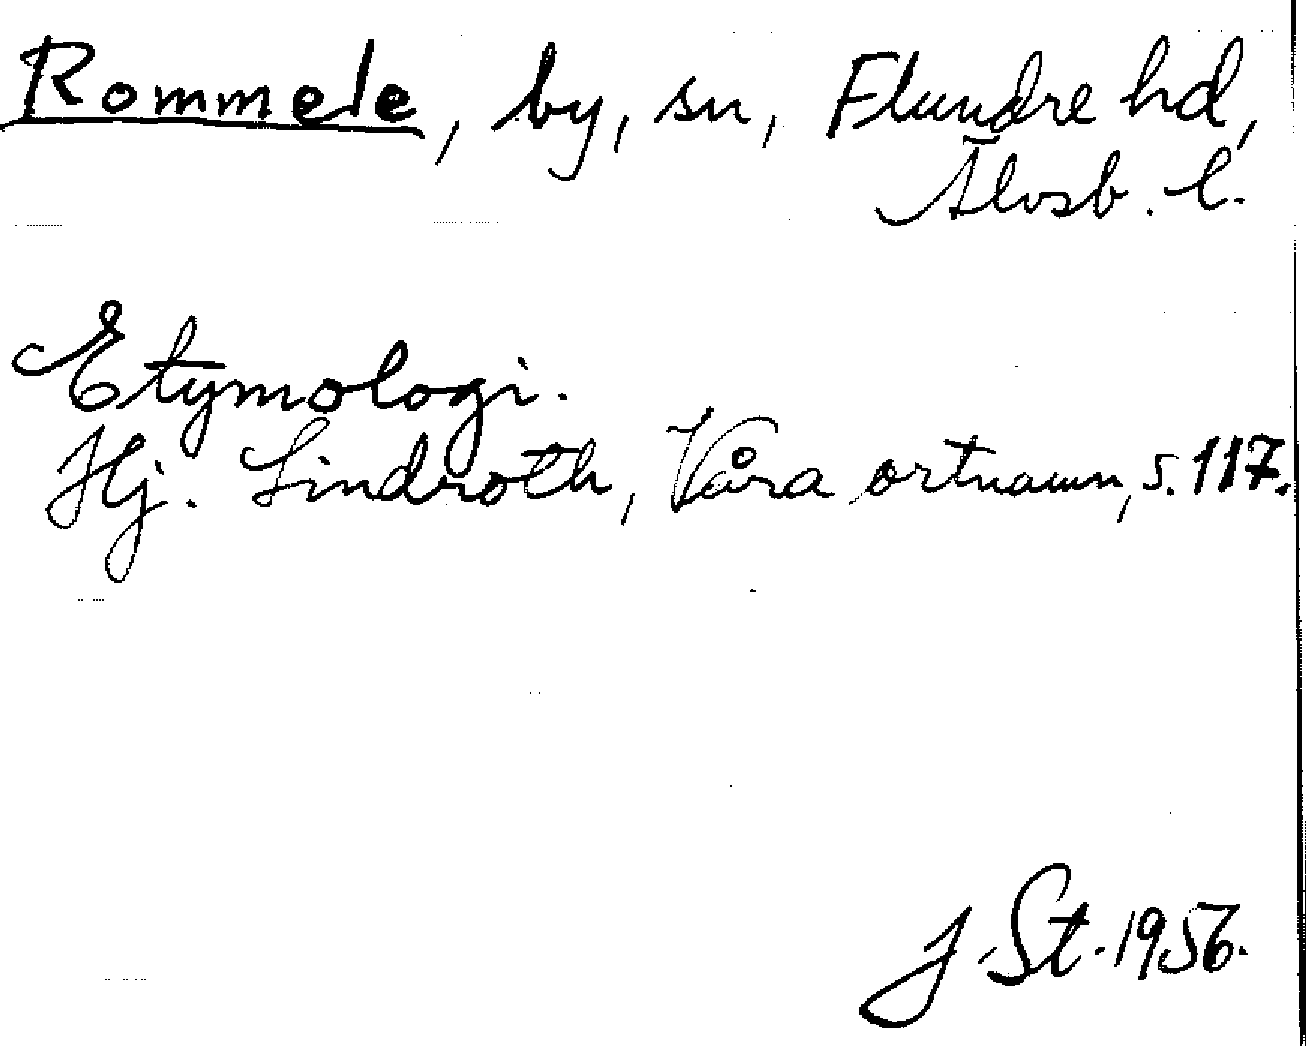 Rommele, by, sn, Flundre hd,
Älvsb. l.
Etymologi.
Hj. Lindroth, Våra ortnamn, s. 117.
J. St. 1956.